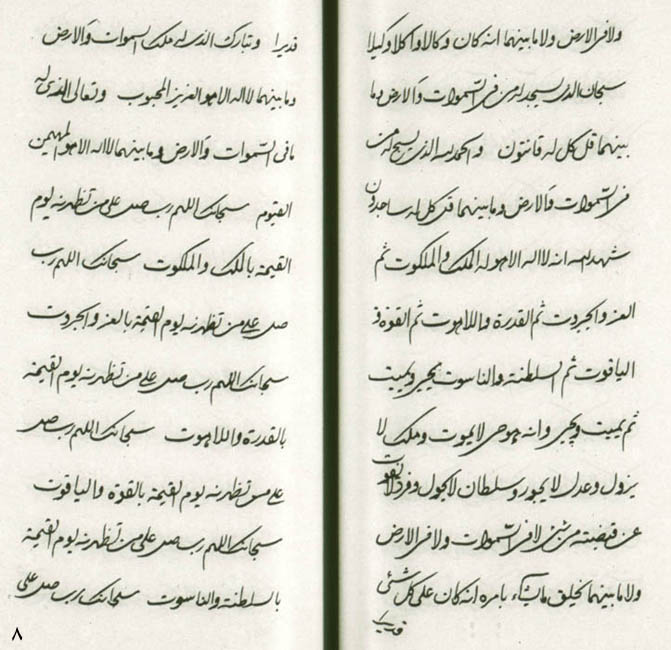 ولا فی الارض ولا ما بینهما انه کان وکالا واکلا وکیلا
سبحان الذی یسجد له من فی السموات والارض وما
بینهما قل کل له قانتون والحمد لله الذی یسبح له من
فی السموات والارض وما بینهما قل کل له ساجدون
شهد الله انه لا اله الا هو له الملک والملکوت ثم
العز والجبروت ثم القدرة واللاهوت ثم القوة و
الیاقوت ثم السلطنة والناسوت یحیی ویمیت
ثم یمیت ویحیی وانه هو حی لا یموت وملک لا
یزول وعدل لا یجور وسلطان لا یحول وفرد لا یفوت
عن قبضته من شیئ لا فی السموات ولا فی الارض
ولا ما بینهما یخلق ما یشآء بامره انه کان علی کل شیئ
قدیرا
قدیرا وتبارک الذی له ملک السموات والارض
وما بینهما لا اله الا هو العزیز المحبوب وتعالی الذی له
ما فی السموات والارض وما بینهما لا اله الا هو المهیمن
القیوم سبحانک اللهم رب صل علی من تظهرنه یوم
القیمة بالملک والملکوت سبحانک اللهم رب
صل علی من تظهرنه یوم القیمة بالعز والجبروت
سبحانک اللهم رب صل علی من تظهرنه یوم القیمة
بالقدرة واللاهوت سبحانک اللهم رب صل
علی من تظهرنه یوم القیمة بالقوة والیاقوت
سبحانک اللهم رب صل علی من تظهرنه یوم القیمة
بالسلطنة والناسوت سبحانک رب صل علی
۸